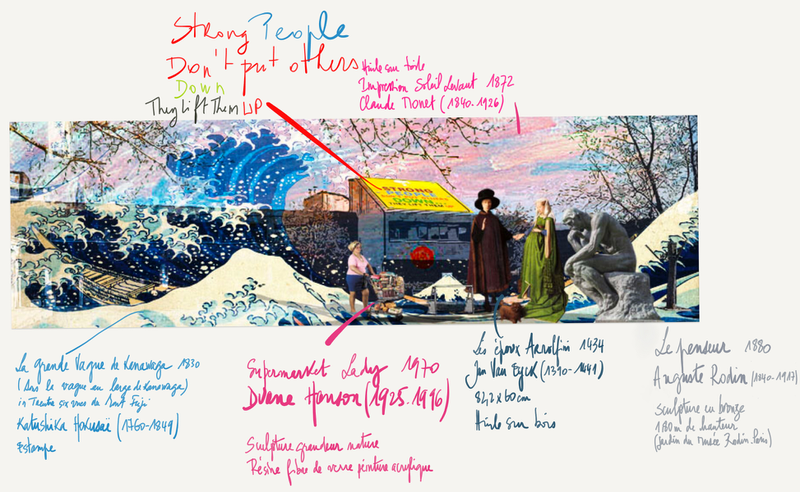 Strong People
Don't put others
Down
They Lift Them UP
Huile sur toile
Impression Soleil Levant 1872
Claude Monet (1840-1926)
STRONG
PEOPLE
DOWN
La grande Vague de Kanawaga 1830
(Ans la vague au large de Kanawaga)
in Trente six vues du Mont Fuji
Katsushika Hokusai (1760-1849)
Estampe
Supermarket Lady 1970
Duane Hanson (1925-1996)
Sculpture grandeur nature
Résine fibre de verre peinture acrylique
Les époux Arnolfini 1434
Jan Van Eyck (1390-1441)
82,2 x 60 cm
Huile sur bois
Le penseur 1880
Auguste Rodin (1840-1917)
sculpture en bronze
180m de hauteur
(Jardin du Musée Rodin. Paris)